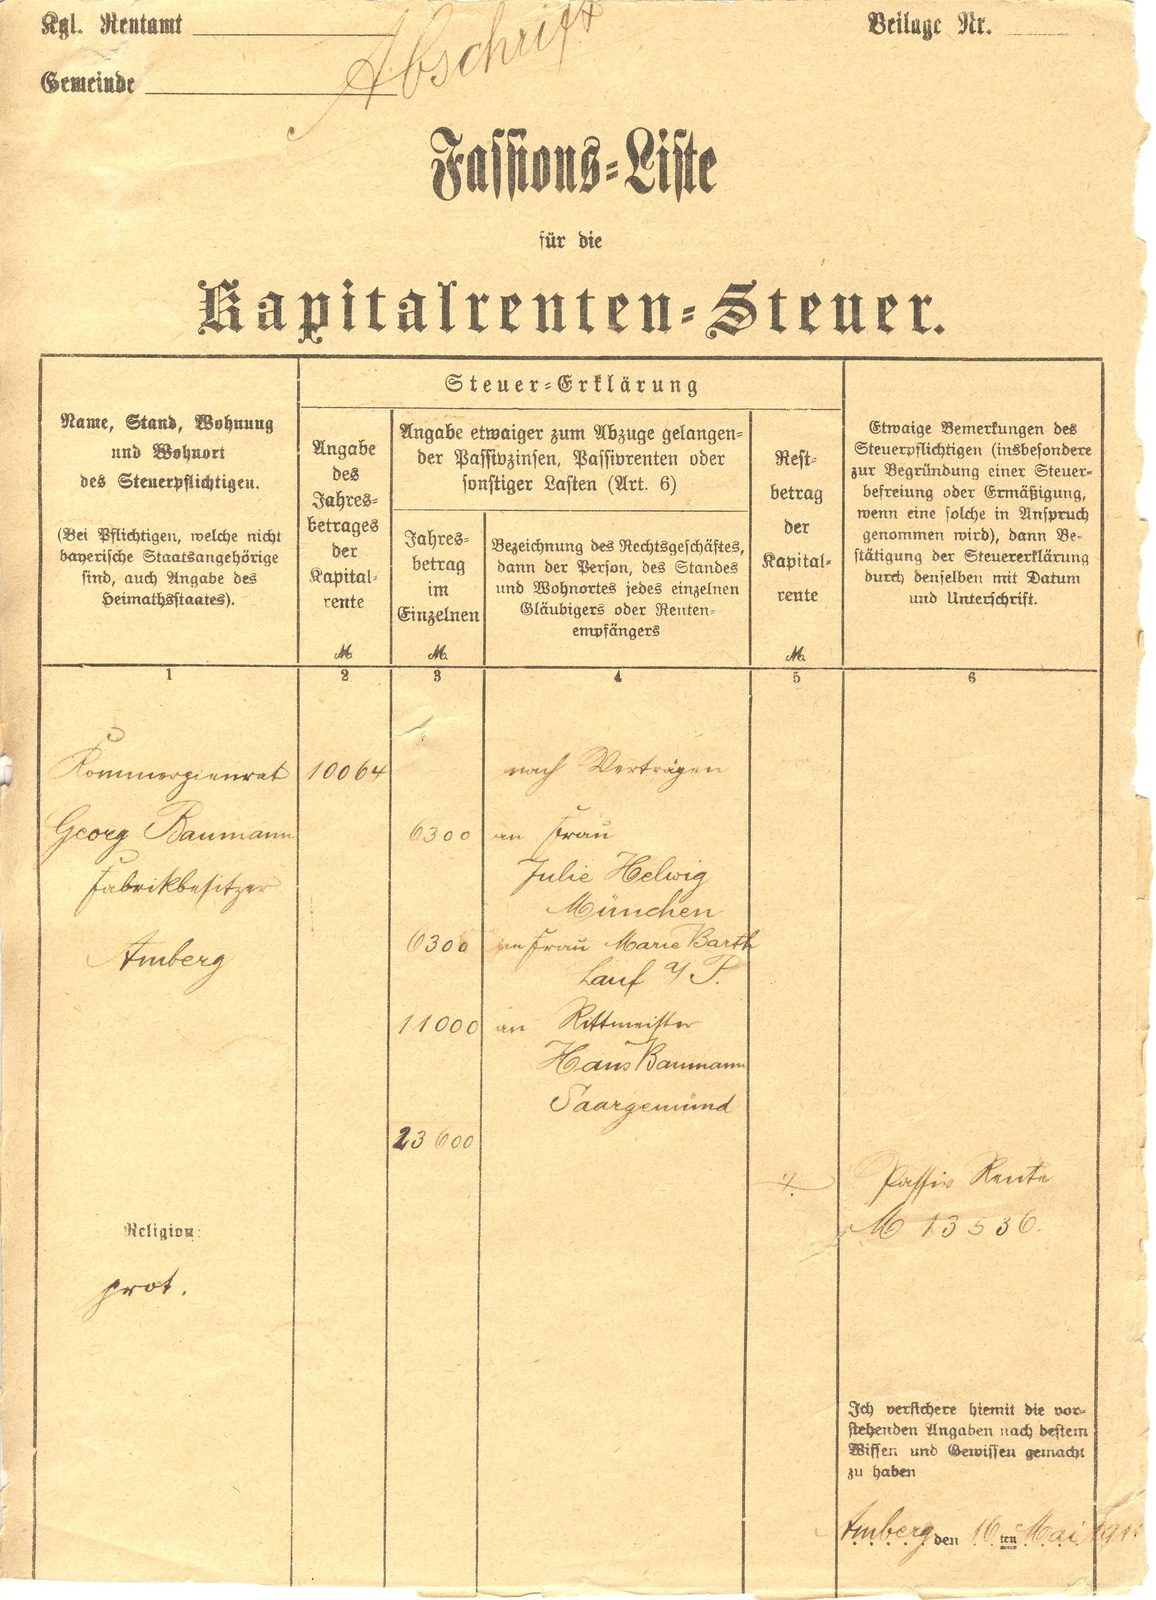 Kgl. Rentamt
Abschrift
Beilage Nr.
Gemeinde
Fassions-Liste
für die
Kapitalrenten-Steuer.
Name, Stand, Wohnung
und Wohnort
des Steuerpflichtigen.
(Bei Pflichtigen, welche nicht
bayerische Staatsangehörige
sind, auch Angabe des
Heimathsstaates).
Steuer-Erklärung
Angabe
des
Jahres-
betrages
der
Kapital-
rente
M
Angabe etwaiger zum Abzuge gelangen-
der Passivzinsen, Passivrenten oder
sonstiger Lasten (Art. 6)
Jahres-
betrag
im
Einzelnen
M
Bezeichnung des Rechtsgeschäftes,
dann der Person, des Standes
und Wohnortes jedes einzelnen
Gläubigers oder Renten-
empfängers
Rest-
betrag
der
Kapital-
rente
M
Etwaige Bemerkungen des
Steuerpflichtigen (insbesondere
zur Begründung einer Steuer-
befreiung oder Ermäßigung,
wenn eine solche in Anspruch
genommen wird), dann Be-
stätigung der Steuererklärung
durch denselben mit Datum
und Unterschrift.
1 2 3 4 5 6
Kommerzienrat 10064 nach Verträgen
Georg Baumann 6300 an Frau
Julie Helwig
Fabrikbesitzer
München
6300 an Frau Marie Barth
Amberg
Lauf a/P.
11000 an Rittmeister
Hans Baumann
Saargemünd
23600
Passiv Rente
M 13536.
Religion:
prot.
Ich versichere hiemit die vor-
stehenden Angaben nach bestem
Wissen und Gewissen gemacht
zu haben
Amberg den 16ten Mai